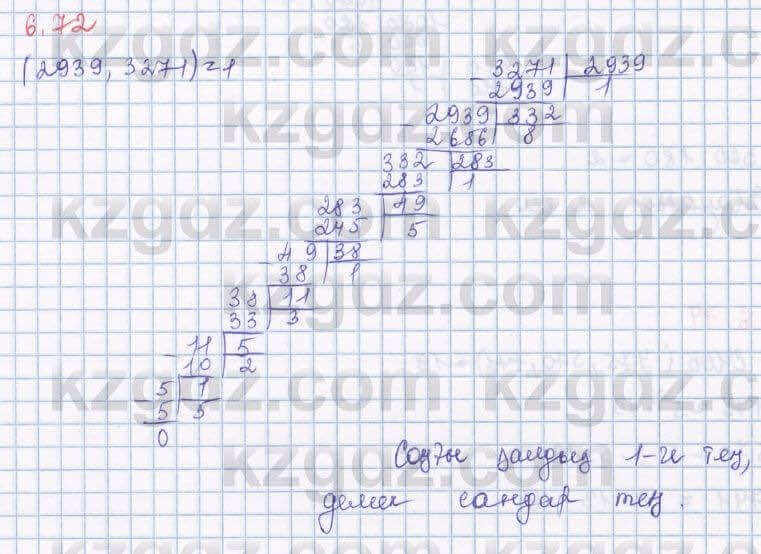 6.72
(2939, 3271) = 1
- 3271 | 2939
2939 | 1
- 2939 | 332
2656 | 8
332 | 283
283 | 1
283 | 49
245 | 5
- 49 | 38
38 | 1
38 | 11
33 | 3
- 11 | 5
10 | 2
- 5 | 1
5 | 5
0
Соңғы қалдық 1-ге тең,
демек сандар тең.
kzgdz.com